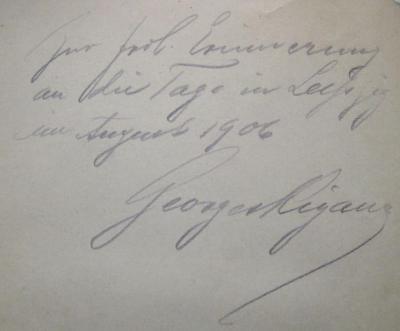 Zur frdl. Erinnerung
an die Tage in Leipzig
im August 1906
Georges Rigaux